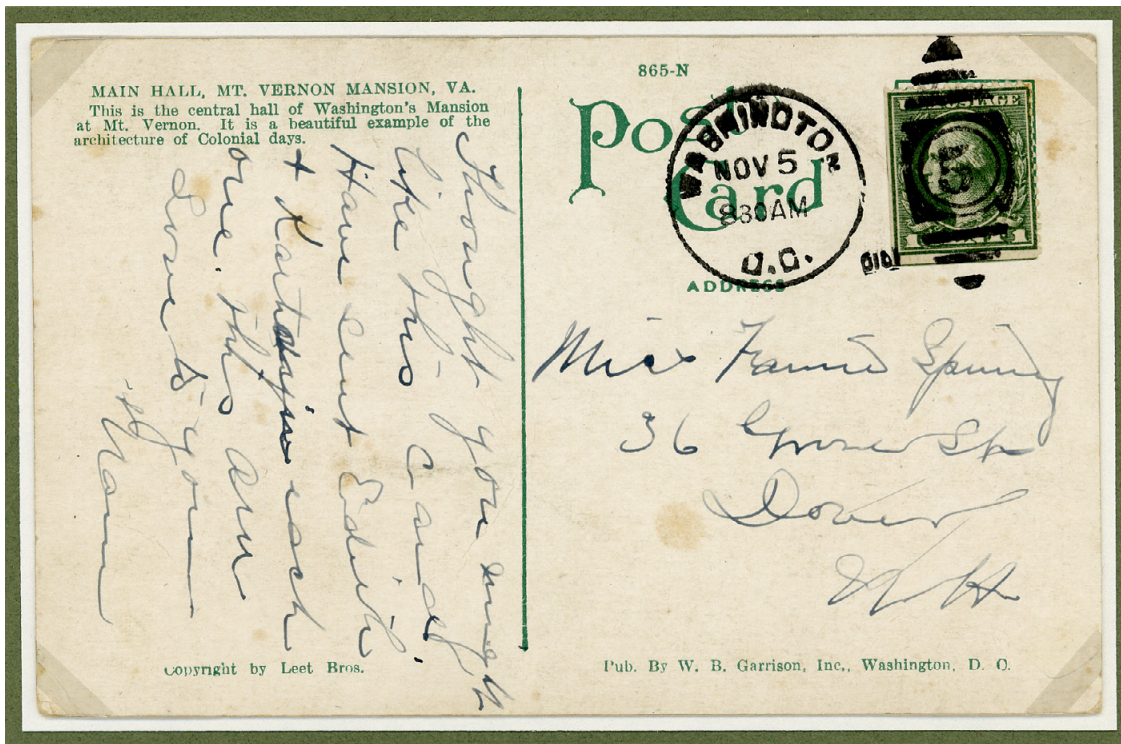 865-N
MAIN HALL, MT. VERNON MANSION, VA.
This is the central hall of Washington's Mansion
at Mt. Vernon. It is a beautiful example of the
architecture of Colonial days.
Thought you might
like this card.
Have sent Edith
+ each
one. this
Love to you
Copyright by Leet Bros.
Post
Card
WASHINGTON
NOV 5
830AM
D.C.
POSTAGE
1 1
ADDRESS
Miss Fannie
36 St
Dover
N H
Pub. By W. B. Garrison, Inc., Washington, D. C.